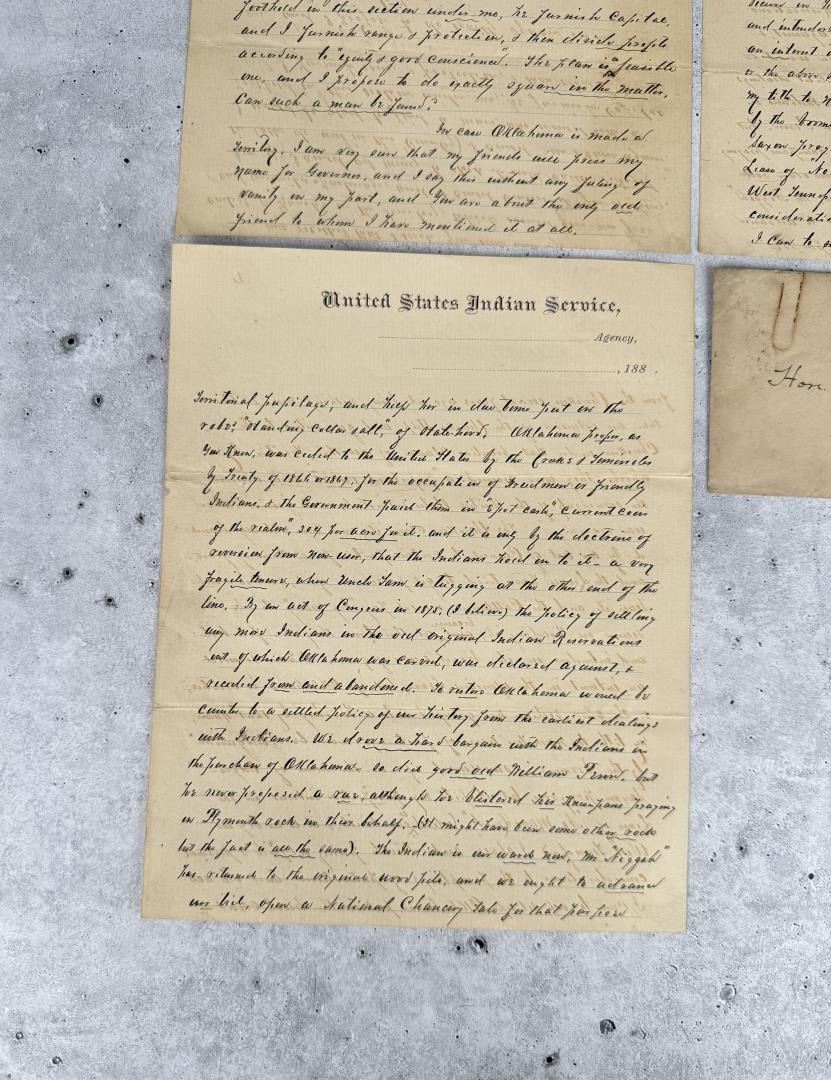 foothold in this section under me, he furnish capital,
and I furnish range & protection, & then divide profits
according to "equity & good conscience". The plan is a feasible
one, and I propose to do exactly square in the matter.
Can such a man be found?
In case Oklahoma is made a
Territory, I am very sure that my friends will press my
name for Governor, and I say this without any feeling of
vanity on my part, and You are about the only old
friend to whom I have mentioned it at all.
secure in
and intruders
an interest
or the above
my title to
by the boome
Saxon prog
Lease of "No
West Tennes
consideratio
I can to
United States Indian Service,
Agency,
, 188 .
Territorial pupilage, and help her in due time put on the
robe, "standing collar & all," of statehood. Oklahoma proper, as
You Know, was ceded to the United States by the Creeks & Seminoles
by Treaty of 1866 or 1867. for the occupation of Freedmen or friendly
Indians, & the Government paid them in "spot cash", current coin
of the realm", 30¢ per acre for it. and it is only by the doctrine of
reversion from non-user, that the Indians hold on to it - a very
fragile tenure, when Uncle Sam is tugging at the other end of the
line. By an act of Congress in 1878. (I believe) the policy of settling
any more Indians in the old original Indian Reservations
out of which Oklahoma was carved, was declared against, &
receded from and abandoned. To restore Oklahoma would be
counter to a settled policy of our history from the earliest dealings
with Indians. We drove a hard bargain with the Indians in
the purchase of Oklahoma - so did good old William Penn. but
he never proposed a rue, although he blistered his Knee pans praying
on Plymouth rock in their behalf. (It might have been some other rock
but the fact is all the same). The Indian is our ward now, Mr "Niggeh"
has returned to the original wood pile, and we ought to advance
our bid, open a National Chancery Sale for that purpose
Hon.